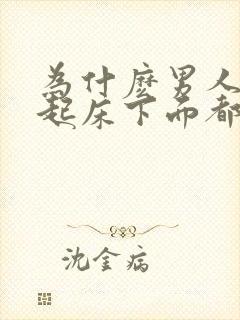 为什麽男人
起床下面都
沈金病